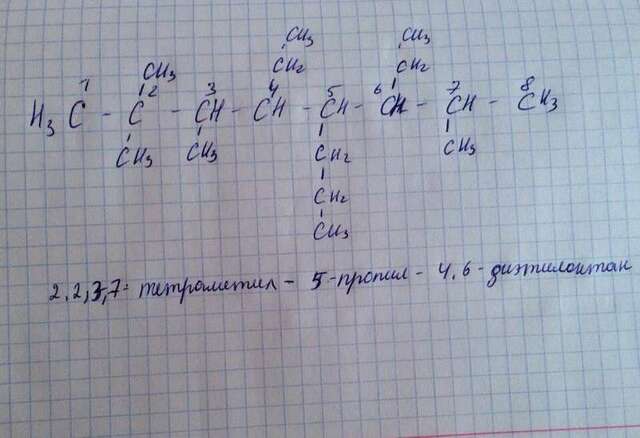 CH3 CH3
CH3 CH2 CH2
1 2 3 4 5 6 7 8
H3C - C - CH - CH - CH - CH - CH - CH3
CH3 CH3 CH2 CH3
CH2
CH3
2,2,3,7-тетрометил - 5-пропил - 4,6-диэтилоктан